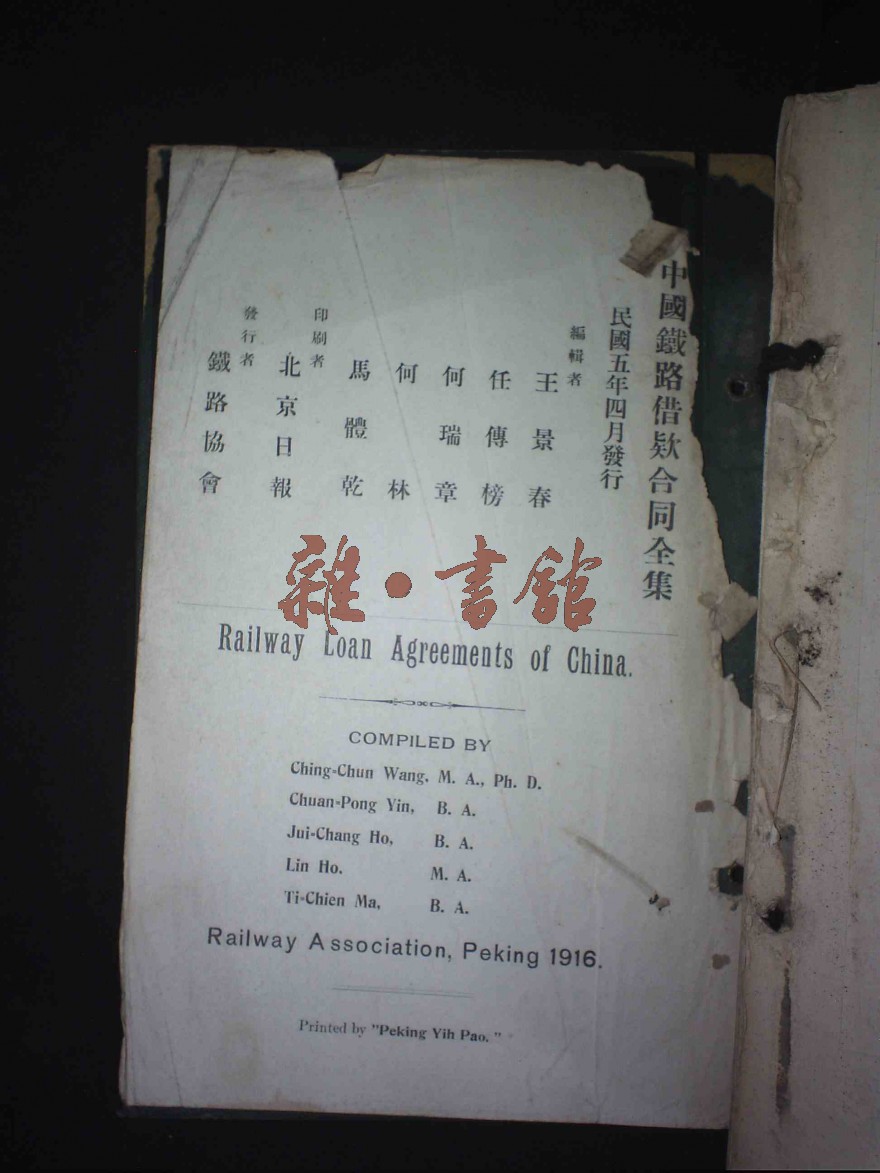 中國鐵路借欵合同全集
民國五年四月發行
編輯者
王景春
任傳榜
何瑞章
何林
馬體乾
印刷者
北京日報
發行者
鐵路協會
雜·書館
Railway Loan Agreements of China.
COMPILED BY
Ching-Chun Wang. M. A., Ph. D.
Chuan-Pong Yin, B. A.
Jui-Chang Ho, B. A.
Lin Ho. M. A.
Ti-Chien Ma, B. A.
Railway Association, Peking 1916.
Printed by "Peking Yih Pao."